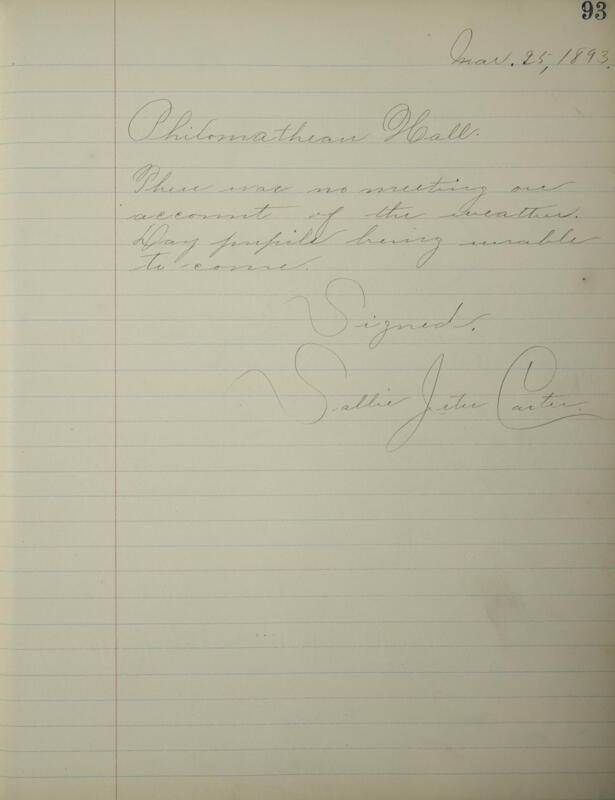 93
Mar. 25, 1893.
Philomathean Hall.
There was no meeting on
account of the weather.
Day pupils being unable
to come.
Signed.
Sallie Jeter Carter.